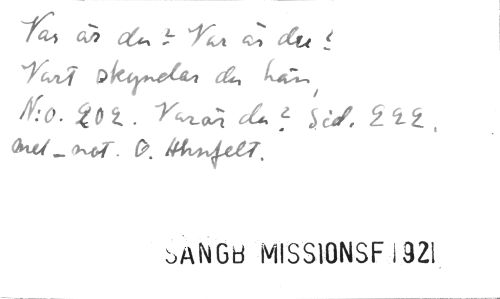 Var är du? Var är du?
Vart skyndar du hän,
N:o. 202. Var är du? Sid. 222.
mel_not. O. Ahnfelt.
SANGB MISSIONSF 1921